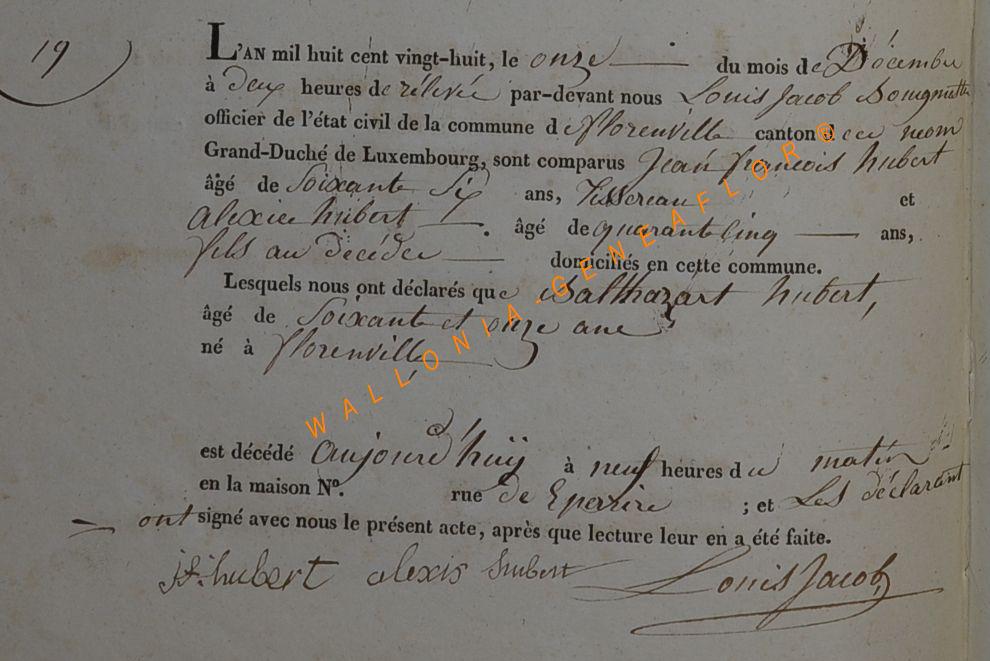 19
L'AN mil huit cent vingt-huit, le onze du mois de Décembre
à deux heures de rélevée par-devant nous Louis Jacob
officier de l'état civil de la commune de florenville canton de ce nom
Grand-Duché de Luxembourg, sont comparus Jean françois hubert
âgé de Soixante Six ans, Tisserean et
alexie hubert âgé de quarante Cinq ans,
fils au décédé domiciliés en cette commune.
Lesquels nous ont déclarés que Balthazart hubert,
âgé de Soixante et onze ans
né à florenville
est décédé aujourd'huy à neuf heures du matin
en la maison N°. rue de ; et Les déclarant
ont signé avec nous le présent acte, après que lecture leur en a été faite.
jf. hubert alexis hubert Louis Jacob
WALLONIA-GENEAFLOR®